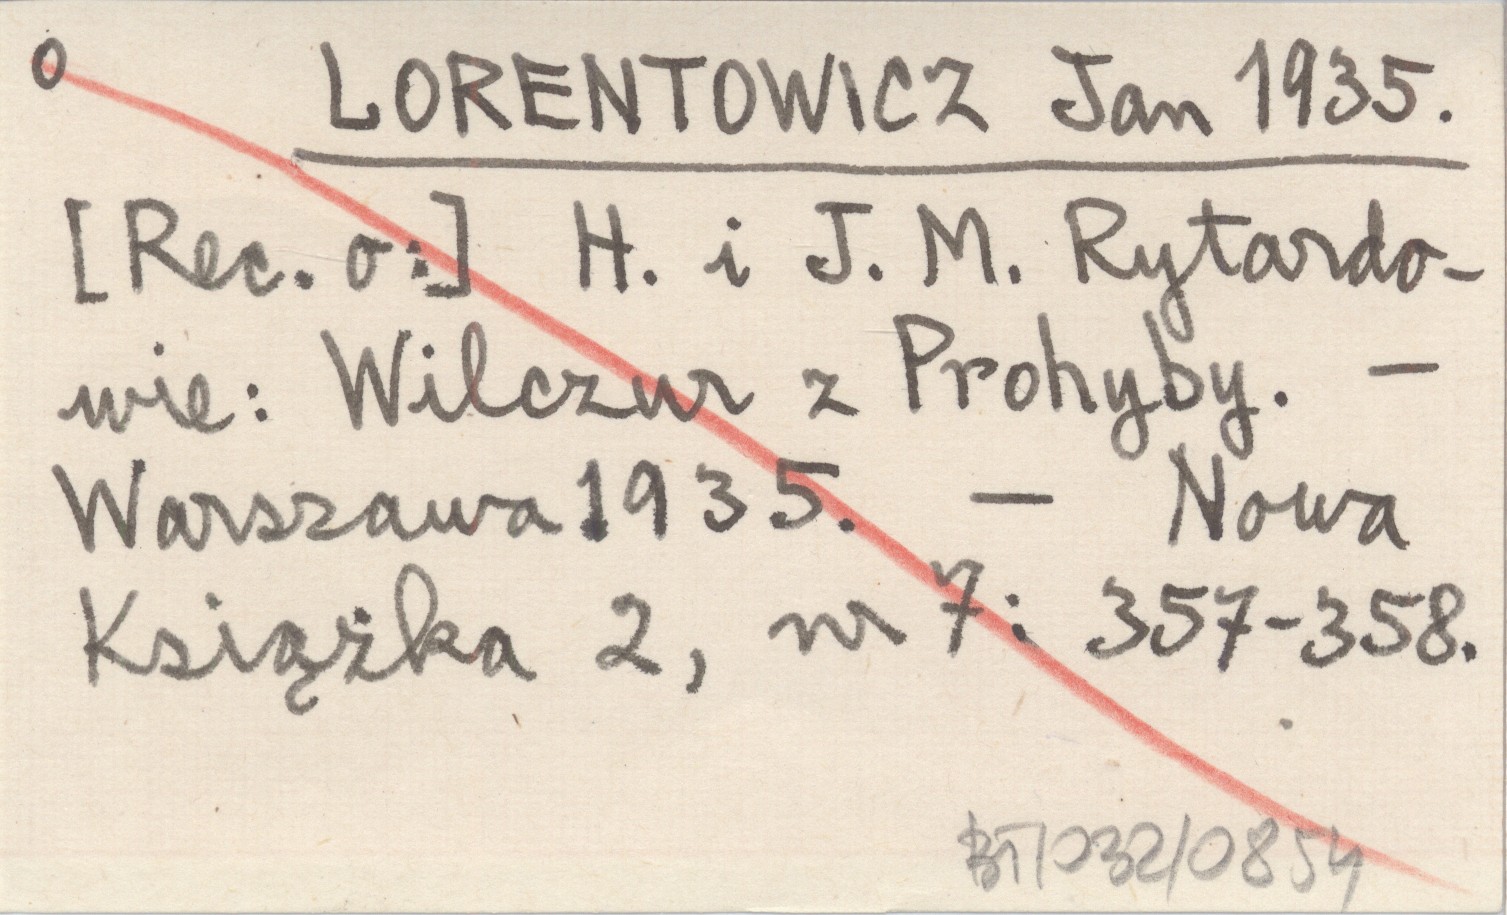 o LORENTOWICZ Jan 1935.
[Rec. o:] H. i J. M. Rytardo-
wie: Wilczur z Prohyby. —
Warszawa 1935. — Nowa
Książka 2, nr 7: 357-358.
BT/032/0854